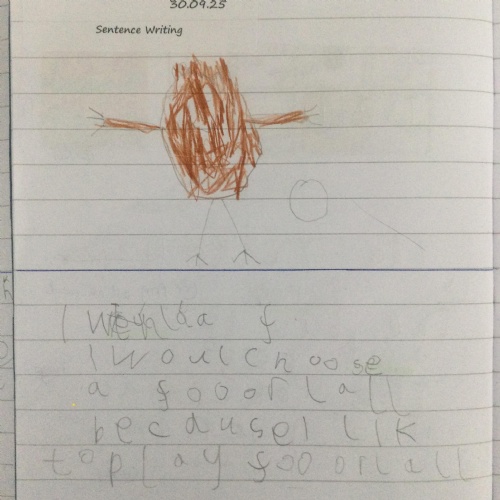 30.09.25
Sentence Writing
I f
I Woul choose
a fooorlall
becausei lik
to play fooorlall